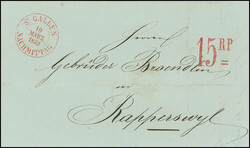 ST GALLEN
10
MÆRZ
NACHMITTAG
15 RP
Herren
Gebrüder Braendlin
in
Rapperswyl